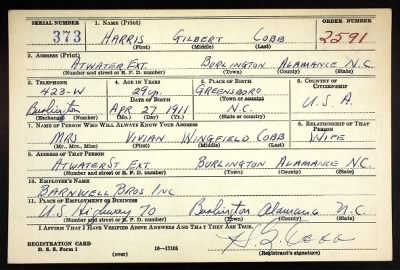 SERIAL NUMBER 1. NAME (Print) ORDER NUMBER
373 HARRIS GILBERT COBB 2591
(First) (Middle) (Last)
2. ADDRESS (Print)
ATWATER EXT. BURLINGTON ALAMANCE N.C.
(Number and street or R. F. D. number) (Town) (County) (State)
3. TELEPHONE 4. AGE IN YEARS 5. PLACE OF BIRTH 6. COUNTRY OF CITIZENSHIP
423-W 29 yrs. GREENSBORO
DATE OF BIRTH (Town or county) U.S.A.
Burlington APR. 27 1911 N.C.
(Exchange) (Number) (Mo.) (Day) (Yr.) (State or country)
7. NAME OF PERSON WHO WILL ALWAYS KNOW YOUR ADDRESS 8. RELATIONSHIP OF THAT PERSON
MRS VIVIAN WINGFIELD COBB WIFE
(Mr., Mrs., Miss) (First) (Middle) (Last)
9. ADDRESS OF THAT PERSON
ATWATER ST EXT. BURLINGTON ALAMANCE N.C.
(Number and street or R. F. D. number) (Town) (County) (State)
10. EMPLOYER'S NAME
BARNWELL BROS INC
11. PLACE OF EMPLOYMENT OR BUSINESS
U.S Highway 70 Burlington Alamance N.C.
(Number and street or R. F. D. number) (Town) (County) (State)
I AFFIRM THAT I HAVE VERIFIED ABOVE ANSWERS AND THAT THEY ARE TRUE.
REGISTRATION CARD
D. S. S. Form 1 (over) 16-17105 (Registrant's signature)